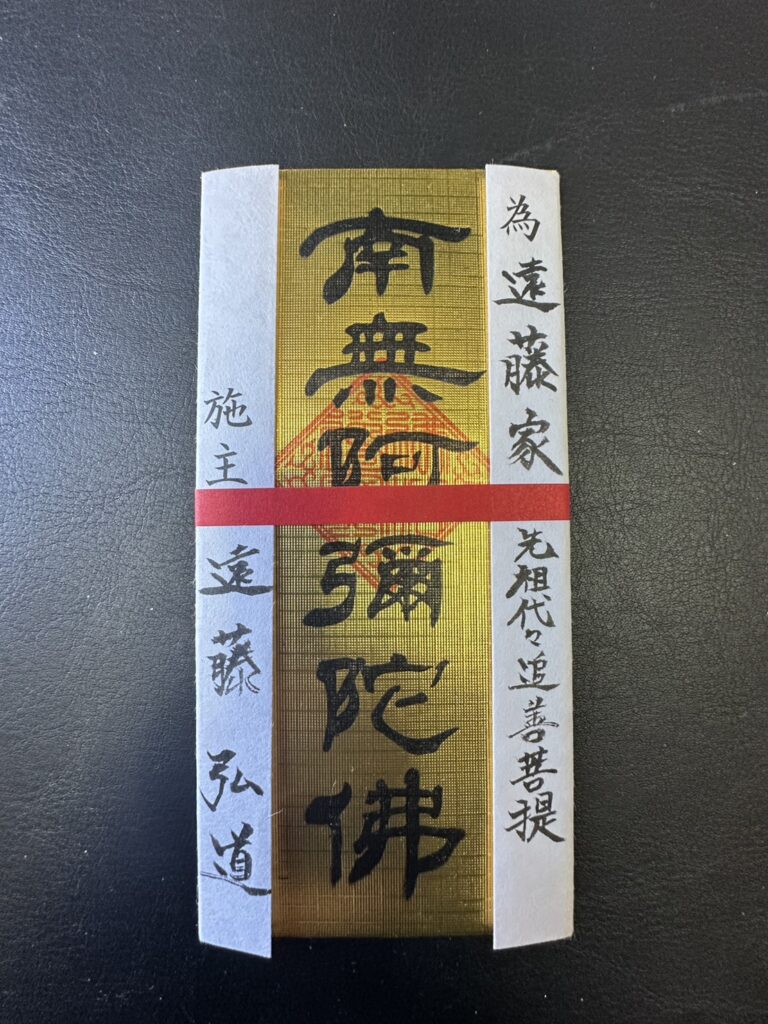 為遠藤家先祖代々追善菩提
南無阿彌陀佛
施主遠藤弘道